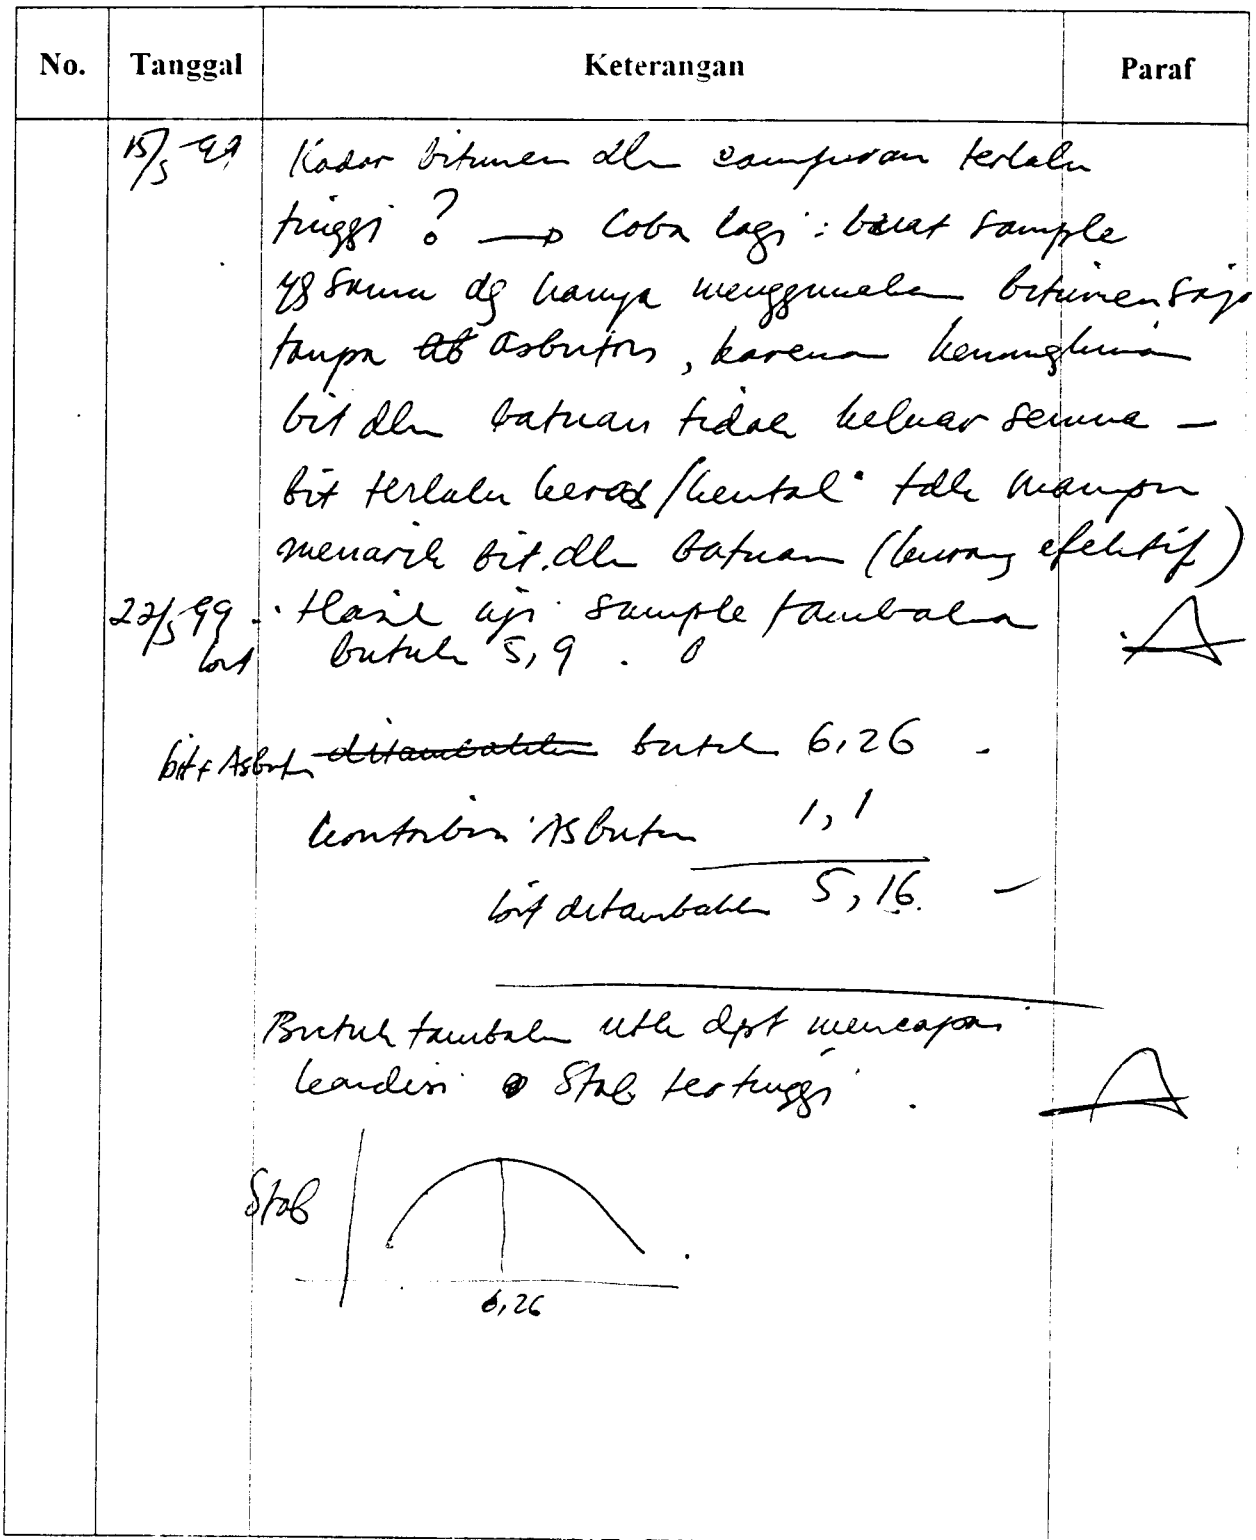 No. Tanggal Keterangan Paraf
15/5-99 Kadar bitumen dlm campuran terlalu
tinggi ? → Coba lagi : buat sample
yg sama dg hanya menggunakan bitumen saja
tanpa asbuton, karena kemungkinan
bit dlm batuan tidak keluar semua –
bit terlalu keras/kental tdk mampu
menarik bit. dlm batuan (kurang efektif)
22/5 99 . Hasil uji sample tambahan
bit butuh 5,9 .
bit + Asbuton ditambahkan butuh 6,26 -
kontribusi Asbuton 1,1
bit ditambahkan 5,16. -
Butuh tambahan utk dpt mencapai
kondisi Stab tertinggi .
Stab
6,26